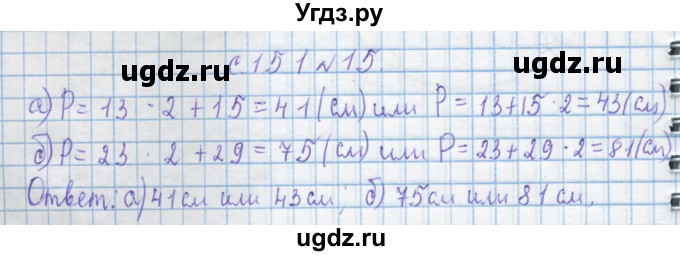 Угдз.ру
с. 151 № 15.
ugdz.ru ugdz.ru
а) P = 13 · 2 + 15 = 41 (см) или P = 13 + 15 · 2 = 43 (см)
ugdz.ru
б) P = 23 · 2 + 29 = 75 (см) или P = 23 + 29 · 2 = 81 (см)
ugdz.ru ugdz.ru
Ответ: а) 41 см или 43 см; б) 75 см или 81 см.
ugdz.ru